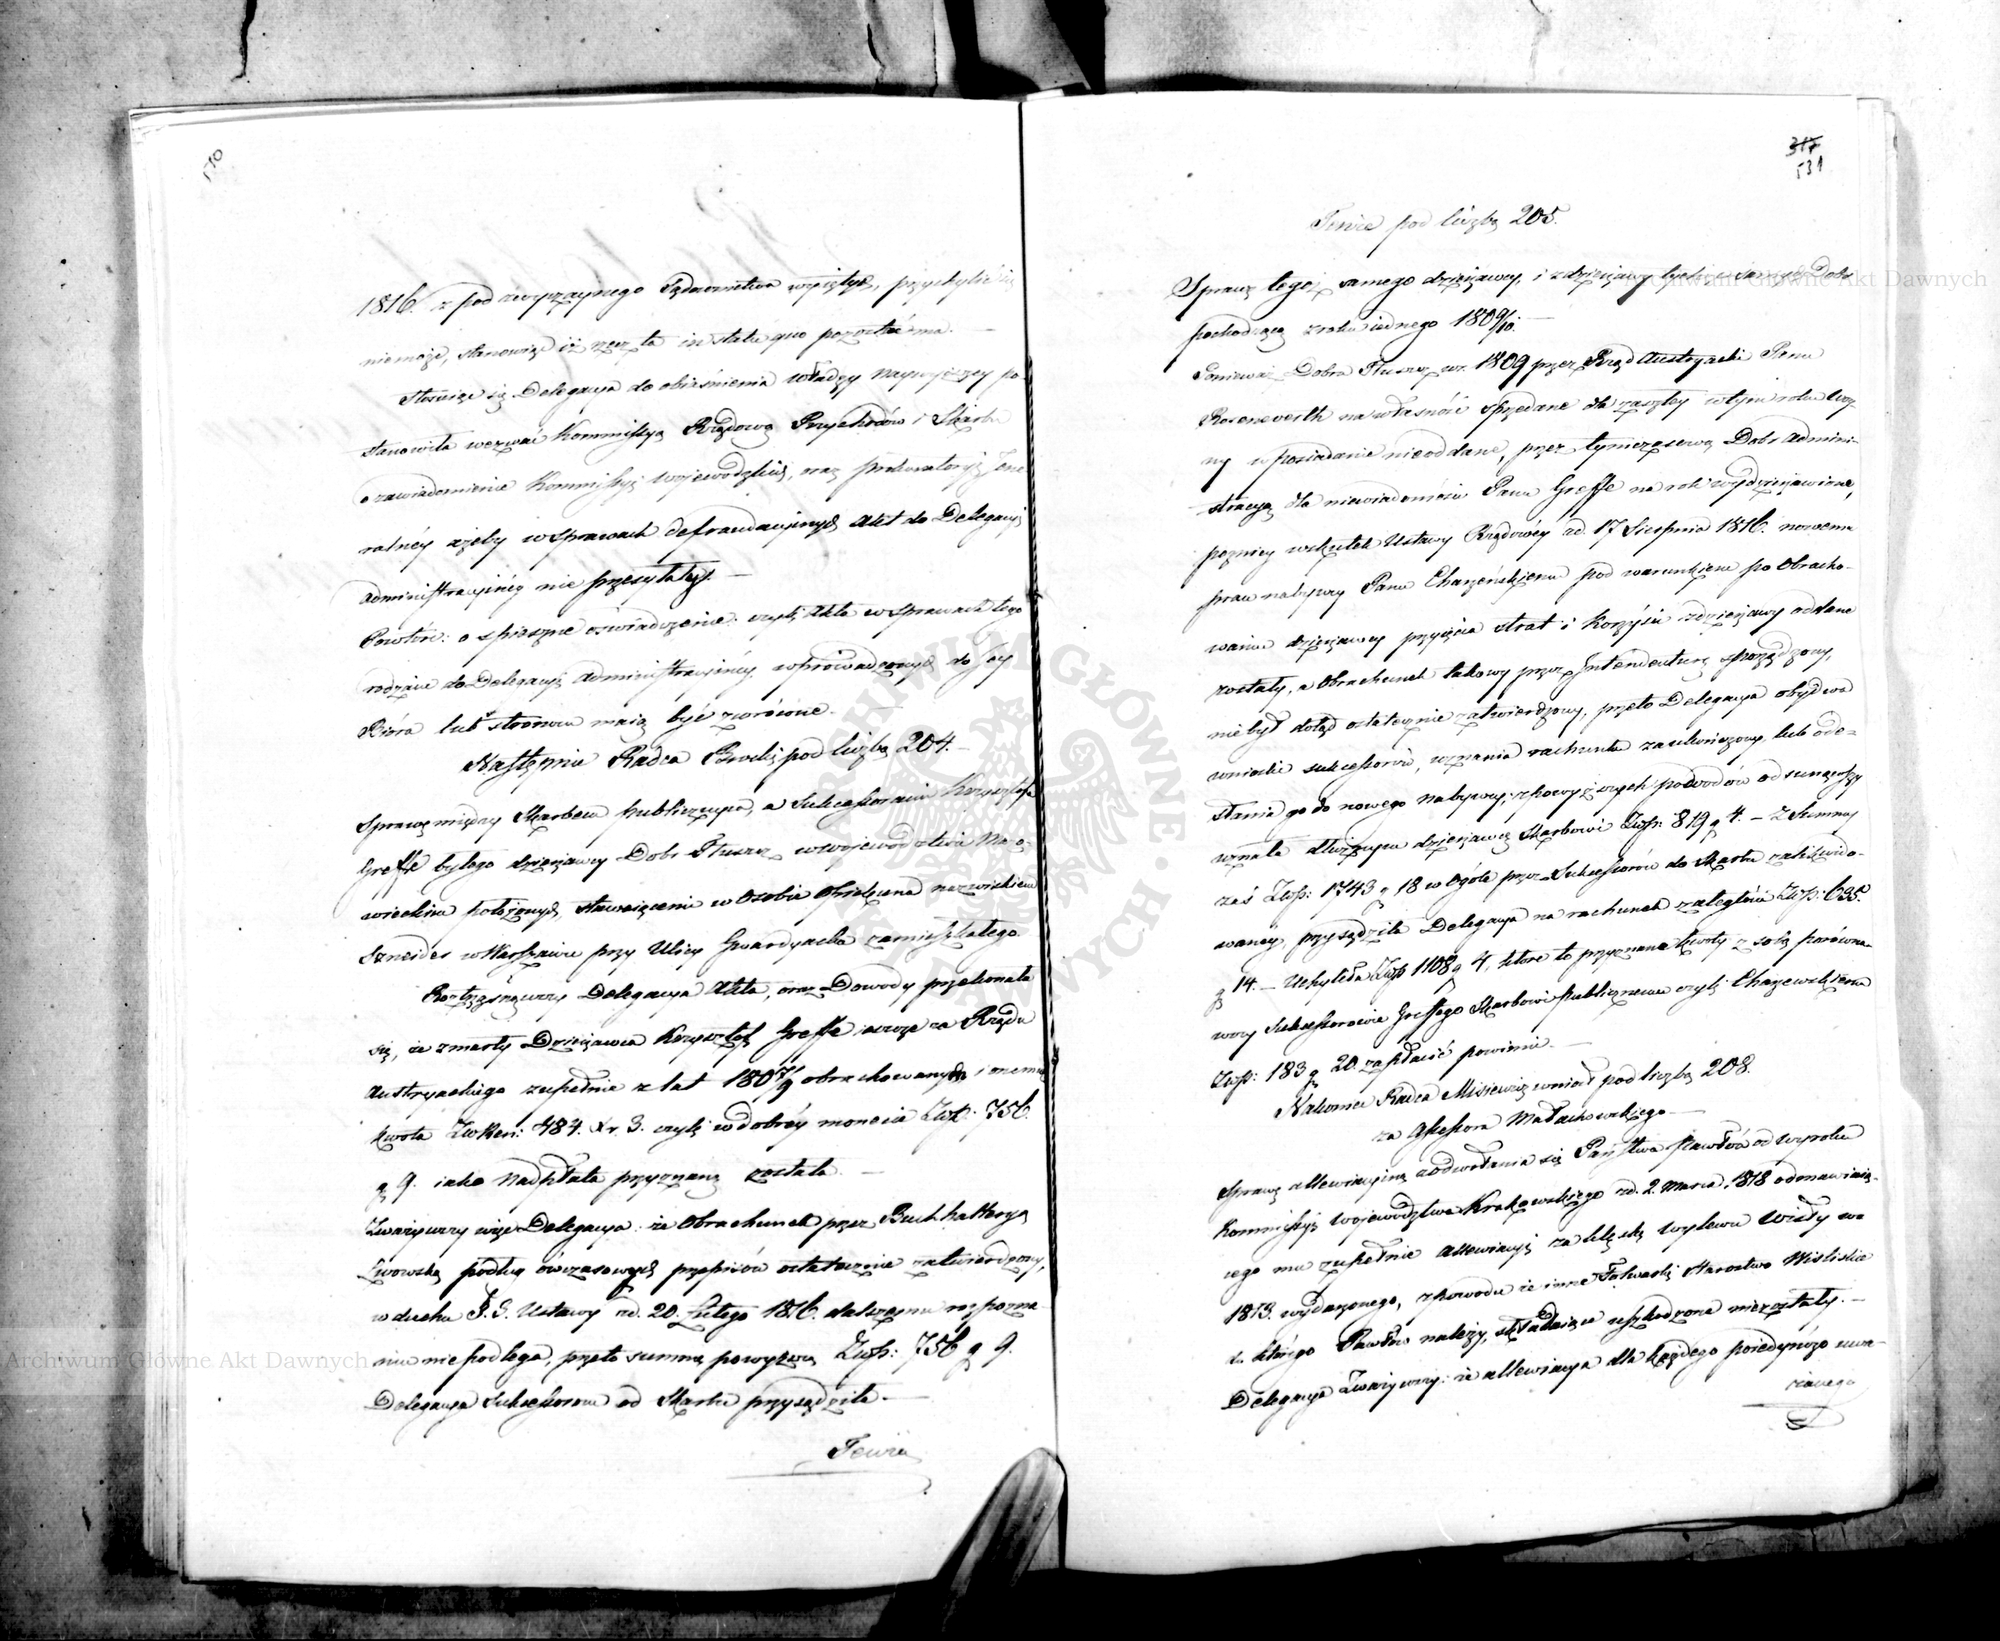 530
1816. z pod zwyczaynego Sądownictwa wziętych, przychylić się
niemoże, stanowiąc iż rzecz ta in statu quo pozostać ma. —
Stosuiąc się Delegacya do obiaśnienia Władzy naywyższey po-
stanowiła wezwać Kommissyą Rządową Przychodów i Skarbu
o zawiadomienie Kommissyi Woiewodzkich, oraz Prokuratoryi Jene-
ralnéy ażeby w sprawach defraudacyinych Akt do Delegacyi
Administracyinéy nie przesyłały. —
Powtóre: o spieszne oświadczenie: czyli Akta w sprawach tego
rodzaiu do Delegacyi Administracyinéy wprowadzonych do Jey
Biura lub stronom maią być zwrócone. —
Następnie Radca Brocki pod liczbą 204. —
Sprawę między Skarbem publicznym, a Sukcessorami Krzysztofa
Greffe byłego dzierżawcy Dobr Tłuszcz w Woiewodztwie Mazo-
wieckim położonych, stawaiącemi w Osobie Opiekuna nazwiskiem
Szneider w Warszawie przy Ulicy Gwardyacka zamieszkałego.
Roztrząsnąwszy Delegacya Akta, oraz Dowody przekonała
się, że zmarły Dzierżawca Krzysztof Greffe ieszcze za Rządu
Austryackiego zupełnie z lat 180 7/9 obrachowanym i onemu
kwota ZwRen: 484. Xr. 3. czyli w dobréy monecie Złp: 756.
g 9. iako nadpłata przyznaną została. —
Zważywszy więc Delegacya: że Obrachunek przez Buchhalteryą
Lwowską podług ówczasowych przepisów ostatecznie zatwierdzony,
w duchu §. 6. Ustawy zd. 20. Lutego 1816. dalszemu rozpozna-
niu nie podlega, przeto summę powyższą Złp: 756 g 9.
Delegacya Sukcessorom od Skarbu przysądziła. —
Tenże
317
531
Tenże pod liczbą 205.
Sprawę tegoż samego dzierżawcy, i z dzierżawy tychże samych Dobr
pochodzącą z roku iednego 1809/10. —
Ponieważ Dobra Tłuszcz w r. 1809 przez Rząd Austryacki Panu
Rosenwerth na własność sprzedane dla zaszłey w tym roku Woy-
ny w posiadanie nieoddane, przez tymczasową Dobr Admini-
stracyą dla niewiadomości Panu Greffe na rok wydzierżawione,
pozniey w skutek Ustawy Rządowéy zd. 17 Sierpnia 1816. nowemu
praw nabywcy Panu Charzewskiemu pod warunkiem po Obracho-
waniu dzierżawcy przyięcia strat i korzyści z dzierżawy oddane
zostały, a Obrachunek takowy przez Intendenturę sporządzony,
nie był dotąd ostatecznie zatwierdzony, przeto Delegacya obydwa
wnioski sukcessorów, uznania rachunku za ukończony, lub ode-
słania go do nowego nabywcy, z powyższych powodów odsunąwszy
uznała dłużnym dzierżawcę Skarbowi Złp: 819 g 4. — Z Summy
zaś Złp: 1743 g 18 w ogóle przez Sukcessorów do Skarbu zalikwido-
wanéy, przysądziła Delegacya na rachunek zaległości Złp: 635.
g 14. — Uchyliła Złp 1108 g 4, które to przyznane kwoty z sobą porówna-
wszy Sukcessorowie Greffego Skarbowi Publicznemu czyli Charzewskiemu
Złp: 183 g 20. zapłacić powinni. —
Nakoniec Radca Misiewicz wniósł pod liczbą 208.
za Assessora Małachowskiego. —
Sprawę allewiacyiną z odwołania się Państwa Pawłów od wyroku
Kommissyi Woiewodztwa Krakowskiego zd. 2. Marca. 1818 odmawiaią-
cego mu zupełnie allewiacyi za klęskę wylewu Wisły w
1813. wydarzonego, z powodu że inne Folwarki Starostwo Wislickie
do którego Pawłów należy, składaiące uszkodzone niezostały. —
Delegacya Zważywszy: że allewiacya dla każdego poiedynczo uwa-
żanego